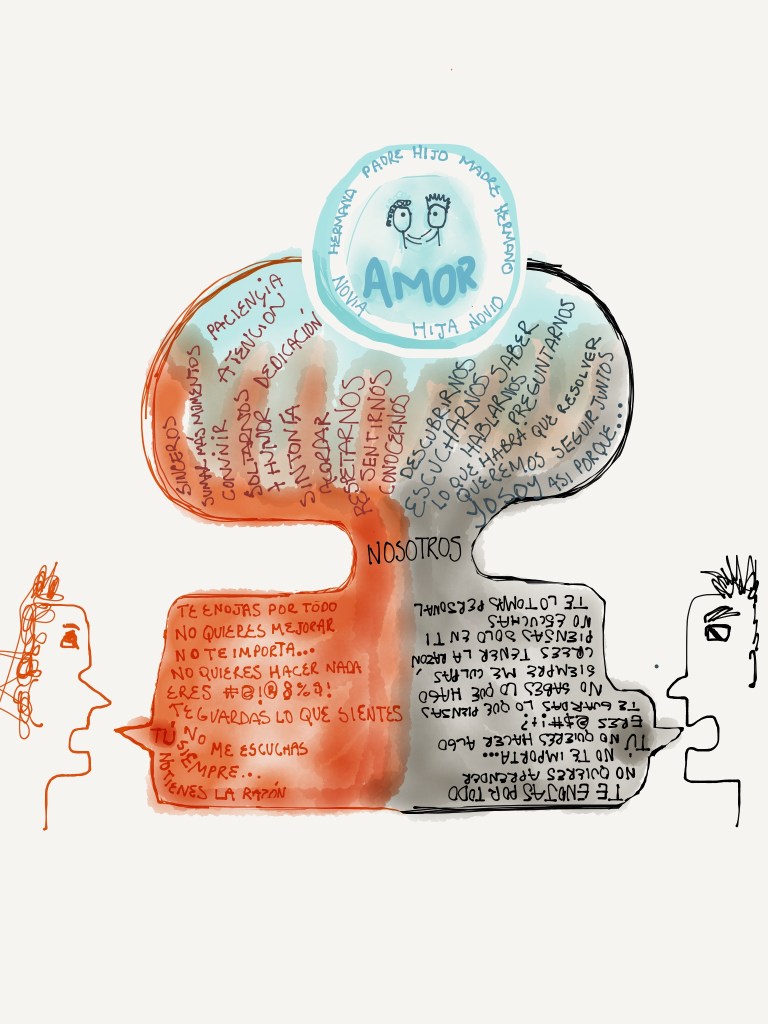 HERMANA PADRE HIJO MADRE HERMANO
AMOR
NOVIA
HIJA NOVIO
SINCEROS
SUMAR MÁS MOMENTOS
CONVIVIR
PACIENCIA
ATENCIÓN
SOLTARNOS
+ HUMOR
DEDICACIÓN
SINTONÍA
ACORDAR
RESPETARNOS
SENTIRNOS
CONOCERNOS
DESCUBRIRNOS
ESCUCHARNOS SABER
LO QUE HABLARNOS
QUE HABRÁ PREGUNTARNOS
QUEREMOS QUE RESOLVER
SEGUIR JUNTOS
YO SOY ASI PORQUE...
NOSOTROS
TE ENOJAS POR TODO
NO QUIERES MEJORAR
NO TE IMPORTA...
NO QUIERES HACER NADA
ERES #@!@&%?!
TE GUARDAS LO QUE SIENTES
TÚ NO ME ESCUCHAS
SIEMPRE...
NO TIENES LA RAZÓN
TE ENOJAS POR TODO
NO QUIERES APRENDER
NO TE IMPORTA...
TÚ NO QUIERES HACER ALGO
ERES @$#!+!?
TE GUARDAS LO QUE PIENSAS
NO SABES LO QUE HAGO
SIEMPRE ME CULPAS
CREES TENER LA RAZON
PIENSAS SOLO EN TI
NO ESCUCHAS
TE LO TOMAS PERSONAL